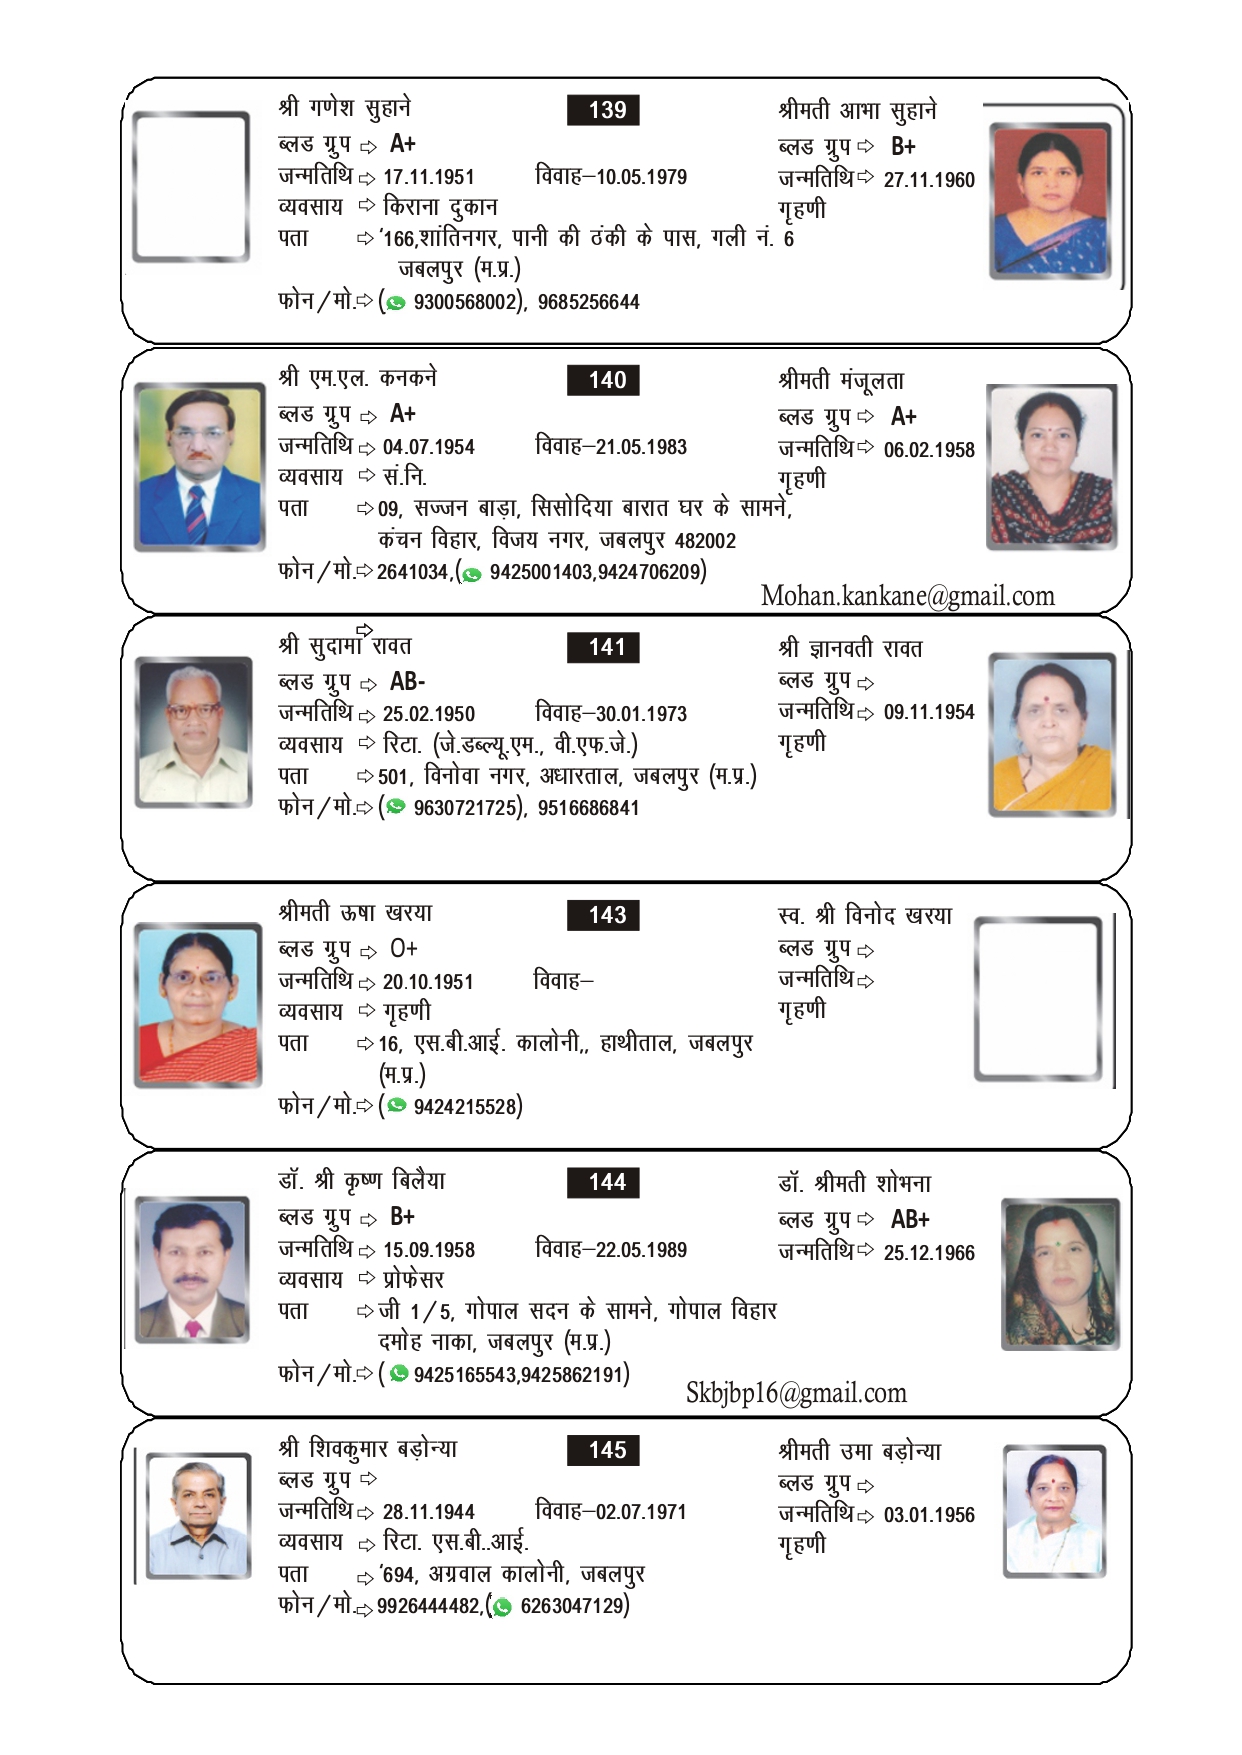 श्री गणेश सुहाने 139 श्रीमती आभा सुहाने
ब्लड ग्रुप ⇨ A+ ब्लड ग्रुप ⇨ B+
जन्मतिथि ⇨ 17.11.1951 विवाह–10.05.1979 जन्मतिथि ⇨ 27.11.1960
व्यवसाय ⇨ किराना दुकान गृहणी
पता ⇨ '166,शांतिनगर, पानी की ठंकी के पास, गली नं. 6
जबलपुर (म.प्र.)
फोन/मो.⇨ ( 9300568002), 9685256644
श्री एम.एल. कनकने 140 श्रीमती मंजूलता
ब्लड ग्रुप ⇨ A+ ब्लड ग्रुप ⇨ A+
जन्मतिथि ⇨ 04.07.1954 विवाह–21.05.1983 जन्मतिथि ⇨ 06.02.1958
व्यवसाय ⇨ सं.नि. गृहणी
पता ⇨ 09, सज्जन बाड़ा, सिसोदिया बारात घर के सामने,
कंचन विहार, विजय नगर, जबलपुर 482002
फोन/मो.⇨ 2641034,( 9425001403,9424706209)
Mohan.kankane@gmail.com
⇨
श्री सुदामा रावत 141 श्री ज्ञानवती रावत
ब्लड ग्रुप ⇨ AB- ब्लड ग्रुप ⇨
जन्मतिथि ⇨ 25.02.1950 विवाह–30.01.1973 जन्मतिथि ⇨ 09.11.1954
व्यवसाय ⇨ रिटा. (जे.डब्ल्यू.एम., वी.एफ.जे.) गृहणी
पता ⇨ 501, विनोवा नगर, अधारताल, जबलपुर (म.प्र.)
फोन/मो.⇨ ( 9630721725), 9516686841
श्रीमती ऊषा खरया 143 स्व. श्री विनोद खरया
ब्लड ग्रुप ⇨ O+ ब्लड ग्रुप ⇨
जन्मतिथि ⇨ 20.10.1951 विवाह– जन्मतिथि ⇨
व्यवसाय ⇨ गृहणी गृहणी
पता ⇨ 16, एस.बी.आई. कालोनी,, हाथीताल, जबलपुर
(म.प्र.)
फोन/मो.⇨ ( 9424215528)
डॉ. श्री कृष्ण बिलैया 144 डॉ. श्रीमती शोभना
ब्लड ग्रुप ⇨ B+ ब्लड ग्रुप ⇨ AB+
जन्मतिथि ⇨ 15.09.1958 विवाह–22.05.1989 जन्मतिथि ⇨ 25.12.1966
व्यवसाय ⇨ प्रोफेसर
पता ⇨ जी 1/5, गोपाल सदन के सामने, गोपाल विहार
दमोह नाका, जबलपुर (म.प्र.)
फोन/मो.⇨ ( 9425165543,9425862191)
Skbjbp16@gmail.com
श्री शिवकुमार बड़ोन्या 145 श्रीमती उमा बड़ोन्या
ब्लड ग्रुप ⇨ ब्लड ग्रुप ⇨
जन्मतिथि ⇨ 28.11.1944 विवाह–02.07.1971 जन्मतिथि ⇨ 03.01.1956
व्यवसाय ⇨ रिटा. एस.बी..आई. गृहणी
पता ⇨ '694, अग्रवाल कालोनी, जबलपुर
फोन/मो.⇨ 9926444482,( 6263047129)